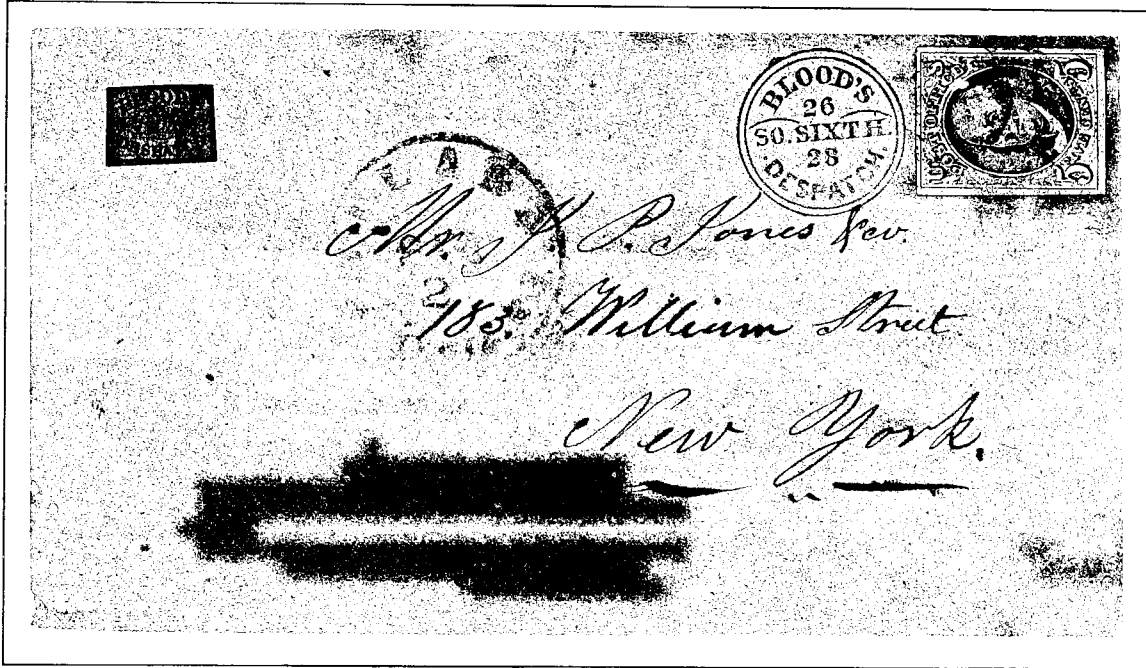 BLOOD'S
26
SO. SIXTH.
28
DESPATCH.
Mr. J. P. Jones & co.
183. William Street
New York.